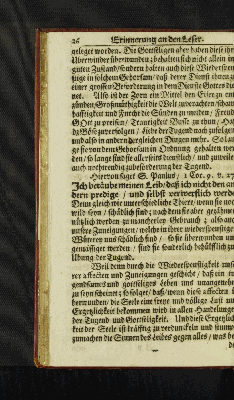 26 Erinnerung an den Leser.
geleget worden. Die Gottseligen aber haben diese ihr
Uberwinder überwunden; behalten sich nicht allein in
guten Zustand, sondern halten auch diese Widerspen-
stige in solchem Gehorsam, daß deren Dienst ihnen zu
einer grossen Beförderung in dem Dienste Gottes die-
net. Also ist der Zorn ein Mittel den Eifer zu ent-
zünden, Großmütigkeit die Welt zu verachten, scham-
hafftigkeit und Furcht die Sünden zu meiden, Freud
GOtt zu preisen, Traurigkeit Busse zu thun, Haß
das Böse zu verfolgen, Liebe der Tugend nach zufolgen
und also in andern dergleichen Dingen mehr.
ge sie von dem Gehorsam in Ordnung gehalten wer-
den, so lange sind sie alle reine dienstlich, und zuweilen
auch nothwendig zubeförderung der Tugend.
Hiervon saget S. Paulus, 1 Cor. 9. v. 27
Ich betäube meinen Leib, daß ich nicht den an-
dern predige, und selbst verwerflich werde
Denn gleich wie unterschiedliche Thiere, wenn sie noch
wild seyn, schädlich sind; nach dem sie aber gezähmet
nützlich werden zu mancherley Gebrauch; also auch
unsere Zuneigungen, welche in ihrer wiederspenstigen
Wüterey uns schädlich sind, so sie überwunden und
gemässiget werden, sind sie sonderlich behülflich zu
Ubung der Tugend.
Weil denn durch die Wiederspenstigkeit unse-
rer affecten und Zuneigungen geschicht, daß ein tu-
gendsames und gottseliges Leben uns unangenehm
zu seyn scheinet; so folget, daß, wenn diese affecten
bezwungen, die Seele eine freye und völlige Lust und
Ergetzlichkeit bekommen wird in allen Handelungen
der Tugend und Gottseligkeit. Und diese Ergetzlich-
keit der Seele ist kräfftig zu verdunckeln und stumm
zumachen die Sinnen des Leibes gegen alles, was be-